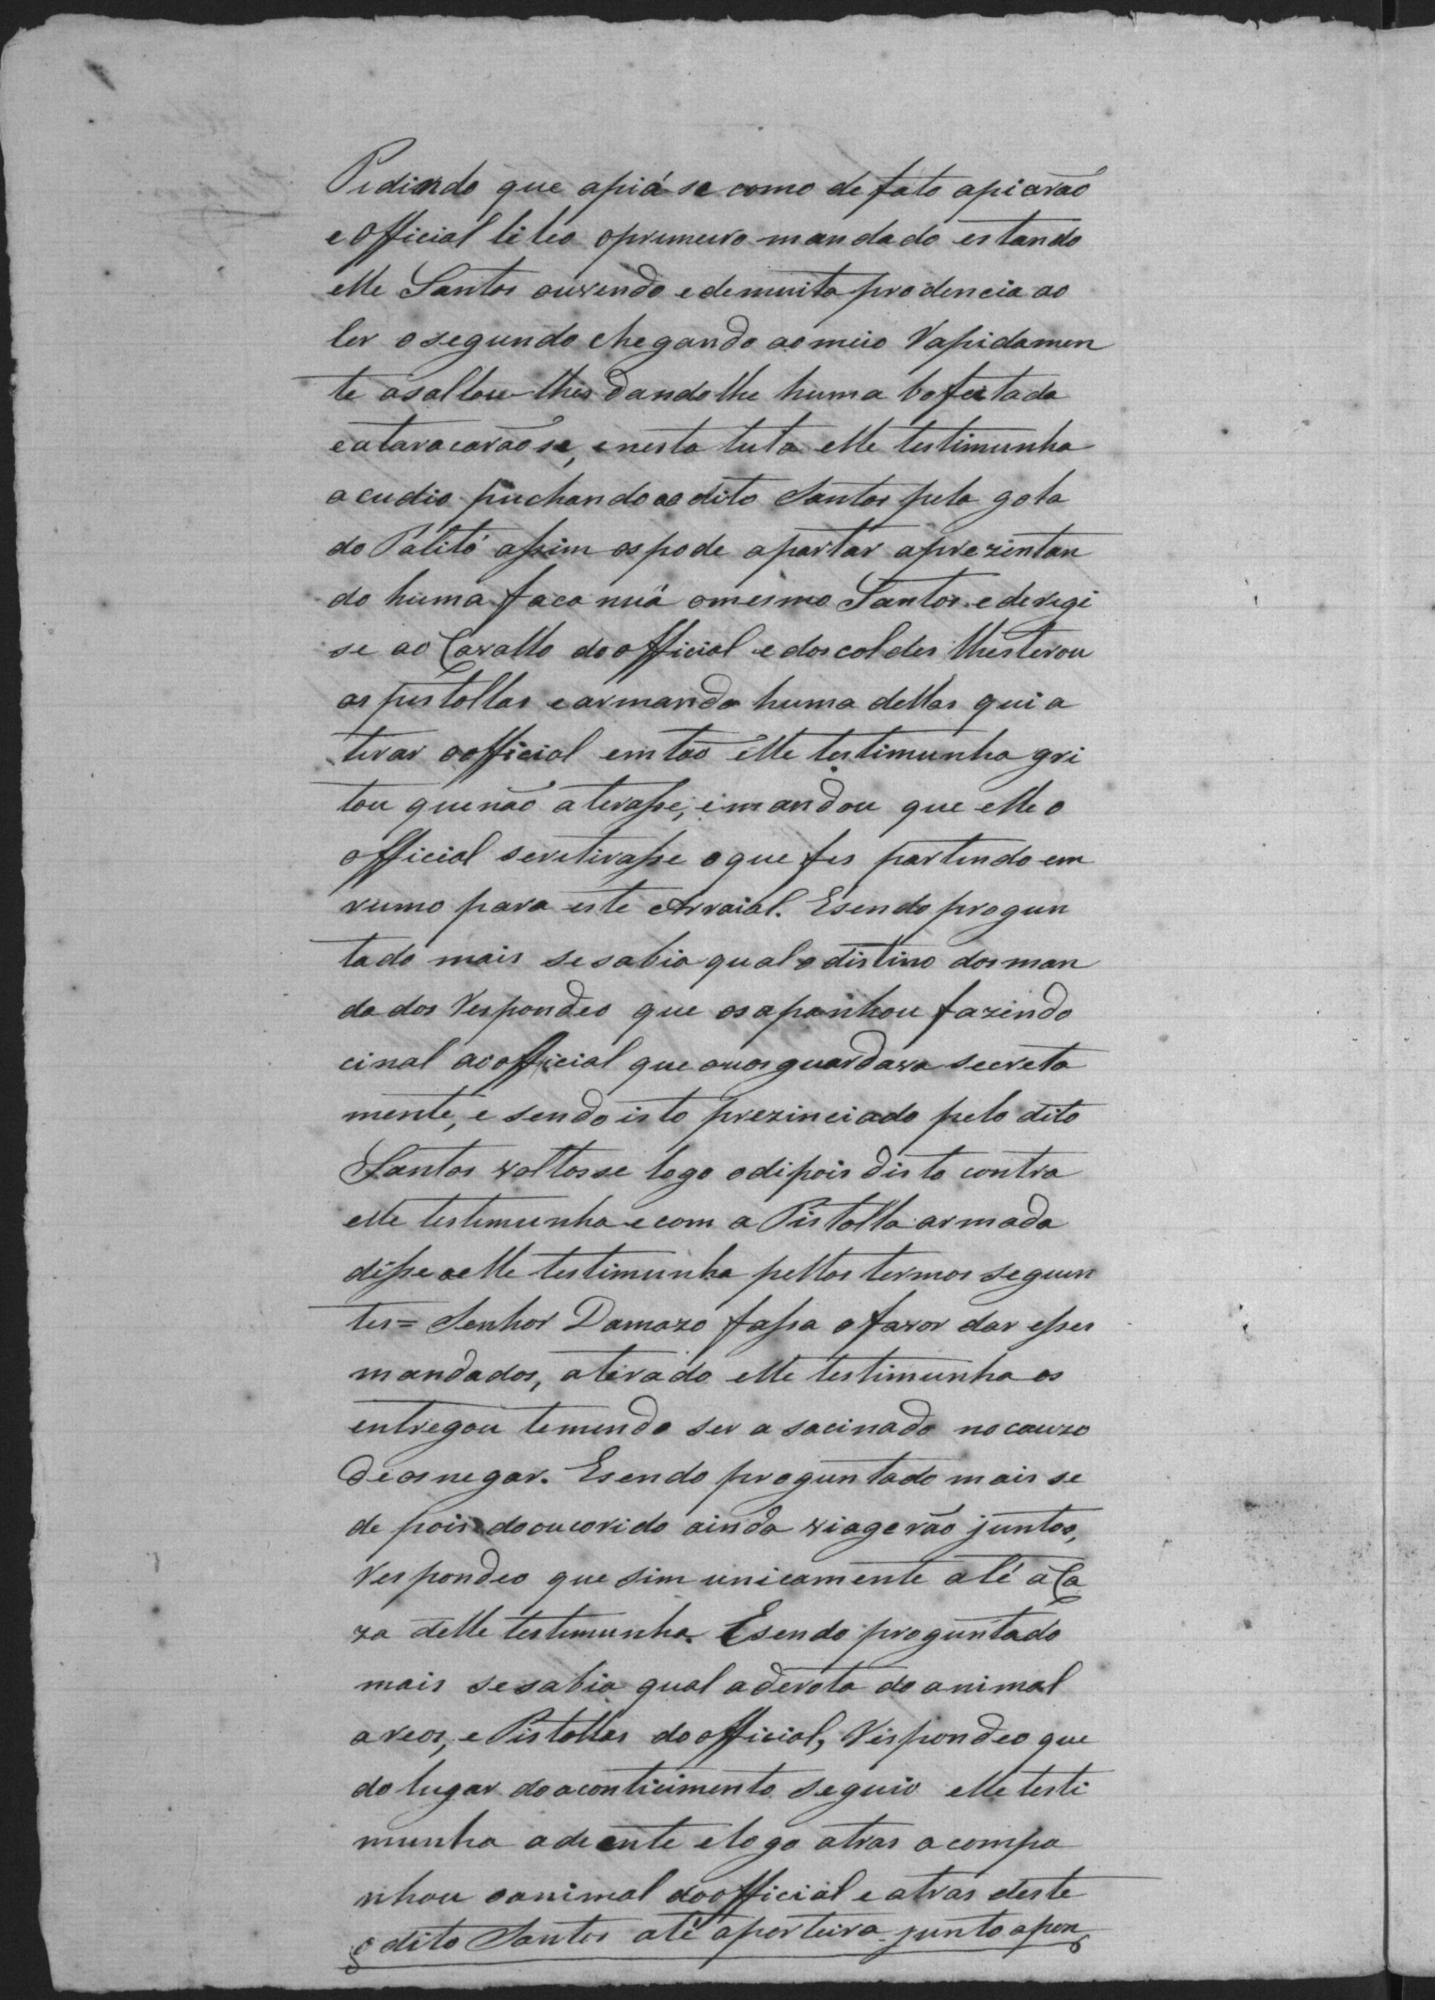 Pidindo que apiá-se como de fato apiarão
e official li leo oprimeiro mandado estando
elle Santos ouvendo e de muita prodencia ao
ler o segundo chegando ao meio Rapidamen
te asaltou-lhes dandolhe huma bofetada
e ataracarãose, e nesta luta elle testimunha
acudio puchando ao dito Santos pela gola
do Palitó assim os pode apartar aprezintan
do huma faca nuá o mesmo Santos e derigi
se ao Cavallo do official e dos coldes lhes terou
as pistollas e armando huma dellas qui a
tirar o official emtão elle testimunha gri
tou que não aterasse, e mandou que elle o
official seretirasse o que fes partindo em
rumo para este Arraial. Esendo progun
tado mais se sabia qual o distino dos man
dados Respondeo que os apanhou fazindo
cinal ao official que os guardava secreta
mente, e sendo isto prezinciado pelo dito
Santos voltosse logo o dipois disto contra
elle testimunha e com a Pistolla armada
disse a elle testimunha pellos termos seguin
tes= Senhor Damazo fassa o favor dar esses
mandados, aterado elle testimunha os
entregou temendo ser asacinado no cauzo
de os negar. Esendo proguntado mais se
de pois do oucorido ainda viagerão juntos,
Respondeo que sim unicamente até a Ca
za delle testimunha. Esendo proguntado
mais se sabia qual a derota do animal
areos, e Pistollas do official, Respondeo que
do lugar do aconticimento seguio elle testi
munha adeante e logo atras acompa
nhou o animal do official e atras deste
o dito Santos até aporteira junto apon